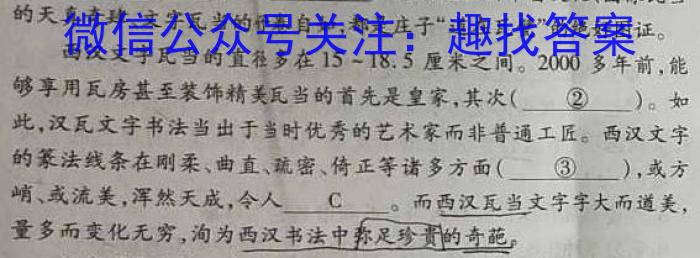 的天真
微信公众号关注：趣找答案
证。
西汉文字瓦当的直径多在15~18.5厘米之间。2000多年前,能
够享用瓦房甚至装饰精美瓦当的首先是皇家,其次(②)。如
此,汉瓦文字书法当出于当时优秀的艺术家而非普通工匠。西汉文字
的篆法线条在刚柔、曲直、疏密、倚正等诸多方面(③),或方
峭、或流美,浑然天成,令人C。而西汉瓦当文字字大而遒美,
量多而变化无穷,洵为西汉书法中弥足珍贵的奇葩。